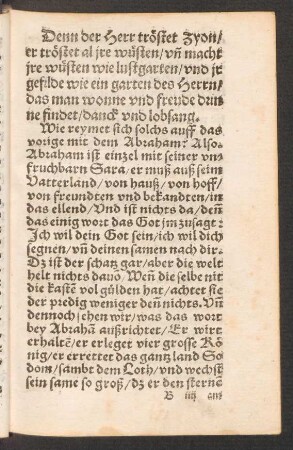 Denn der Herr tröstet Zyon/
er tröstet al jre wüsten/ vñ macht
jre wüsten wie lustgarten/ vnd jr
gefilde wie ein garten des Herrn/
das man wonne vnd freude drin
ne findet/ danck vnd lobsang.
Wie reymet sich solchs auff das
vorige mit dem Abraham? Also.
Abraham ist einzel mit seiner vn
fruchbarn Sara/ er muß auß sein
Vatterland/ von hauß/ von hoff/
von freundten vnd bekandten/ in
das ellend/ Vnd ist nichts da/ deñ
das einig wort das Got jm zusagt:
Ich wil dein Got sein/ ich wil dich
segnen/ vñ deinen samen nach dir.
Dz ist der schatz gar/ aber die welt
helt nichts dauõ/ Weñ die selbe nit
die kastẽ vol gülden hat/ achtet sie
der predig weniger deñ nichts. Vñ
dennoch sehen wir/ was das wort
bey Abrahã außrichtet/ Er wirt
erhaltẽ/ er erleget vier grosse Kö
nig/ er errettet das gantz land So
dom/ sambt dem Loth/ vnd wechst
sein same so groß/ dz er den sterne
B iiij am